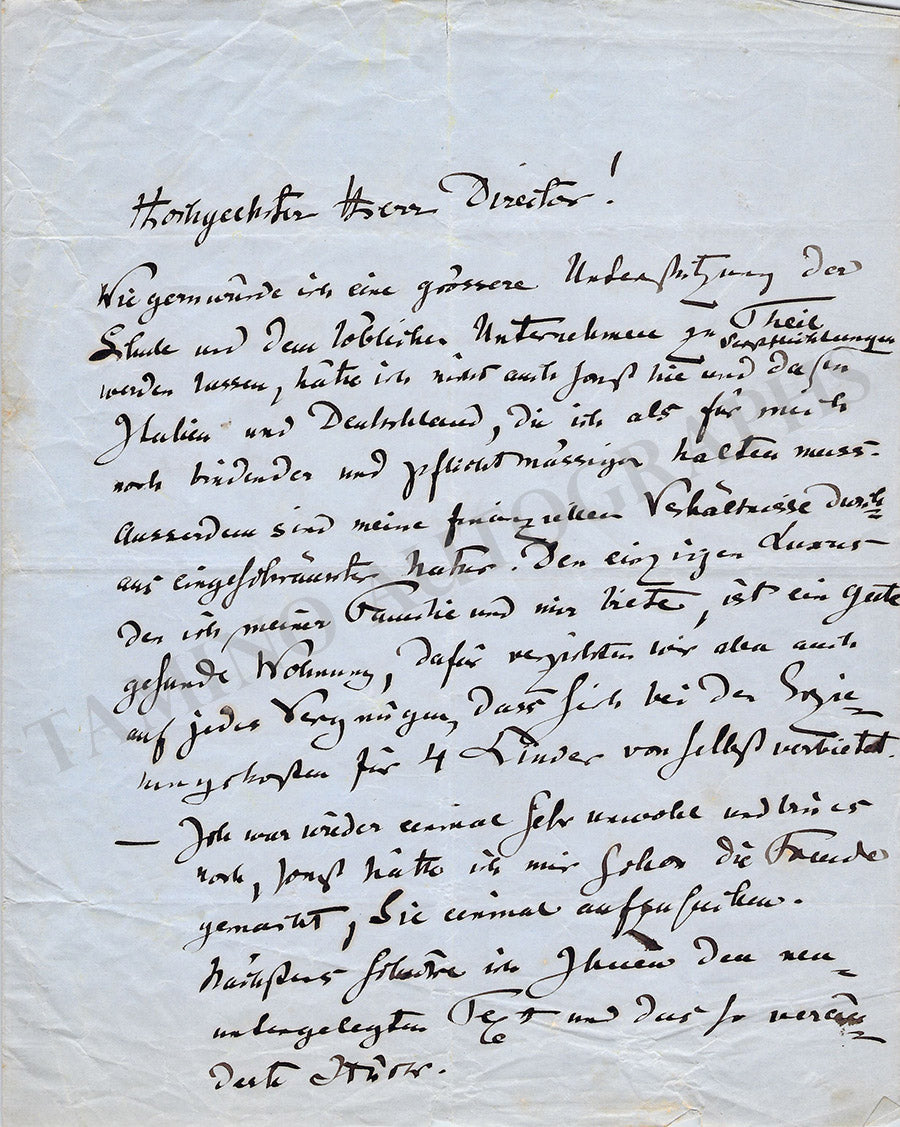 Hochgeehrter Herr Director!
Wie gern würde ich eine grössere Unterstützung der
Schule und dem löblichen Unternehmen zu Theil
werden lassen, hätte ich nicht auch sonst hie und da in Verpflichtungen
Italien und Deutschland, die ich als für mich
noch bindender und pflichtmässiger halten muss.
Ausserdem sind meine finanziellen Verhältnisse durch=
aus eingeschränkter Natur. Den einzigen Luxus
den ich meiner Familie und mir biete, ist ein gute
gesunde Wohnung, dafür verzichten wir aber auch
auf jedes Vergnügen, dass sich bei den Erzie=
hungskosten für 4 Kinder von selbst verbietet.
— Ich war wieder einmal sehr unwohl und bin es
noch, sonst hätte ich mir schon die Freude
gemacht, Sie einmal aufzusuchen.
Nächstens schicke ich Ihnen den neu=
untergelegten Text und das so verän=
derte Stück.
TAMINO AUTOGRAPHS